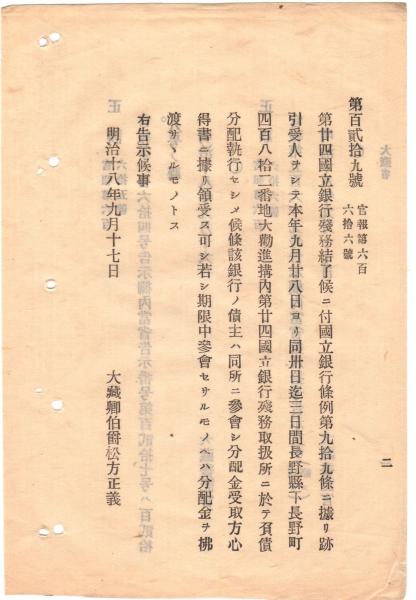 第百貳拾九號
官報第六百
六拾六號
第廿四國立銀行殘務結了候ニ付國立銀行條例第九拾九條ニ據リ跡
引受人ヲシテ本年九月廿八日ヨリ同卅日迄三日間長野縣下長野町
四百八拾二番地大勸進搆內第廿四國立銀行殘務取扱所ニ於テ負債
分配執行セシメ候條該銀行ノ債主ハ同所ニ參會シ分配金受取方心
得書ニ據リ領受ス可シ若シ期限中參會セサルモノヘハ分配金ヲ拂
渡サヽルモノトス
右告示候事
明治十八年九月十七日
大藏卿伯爵松方正義
二